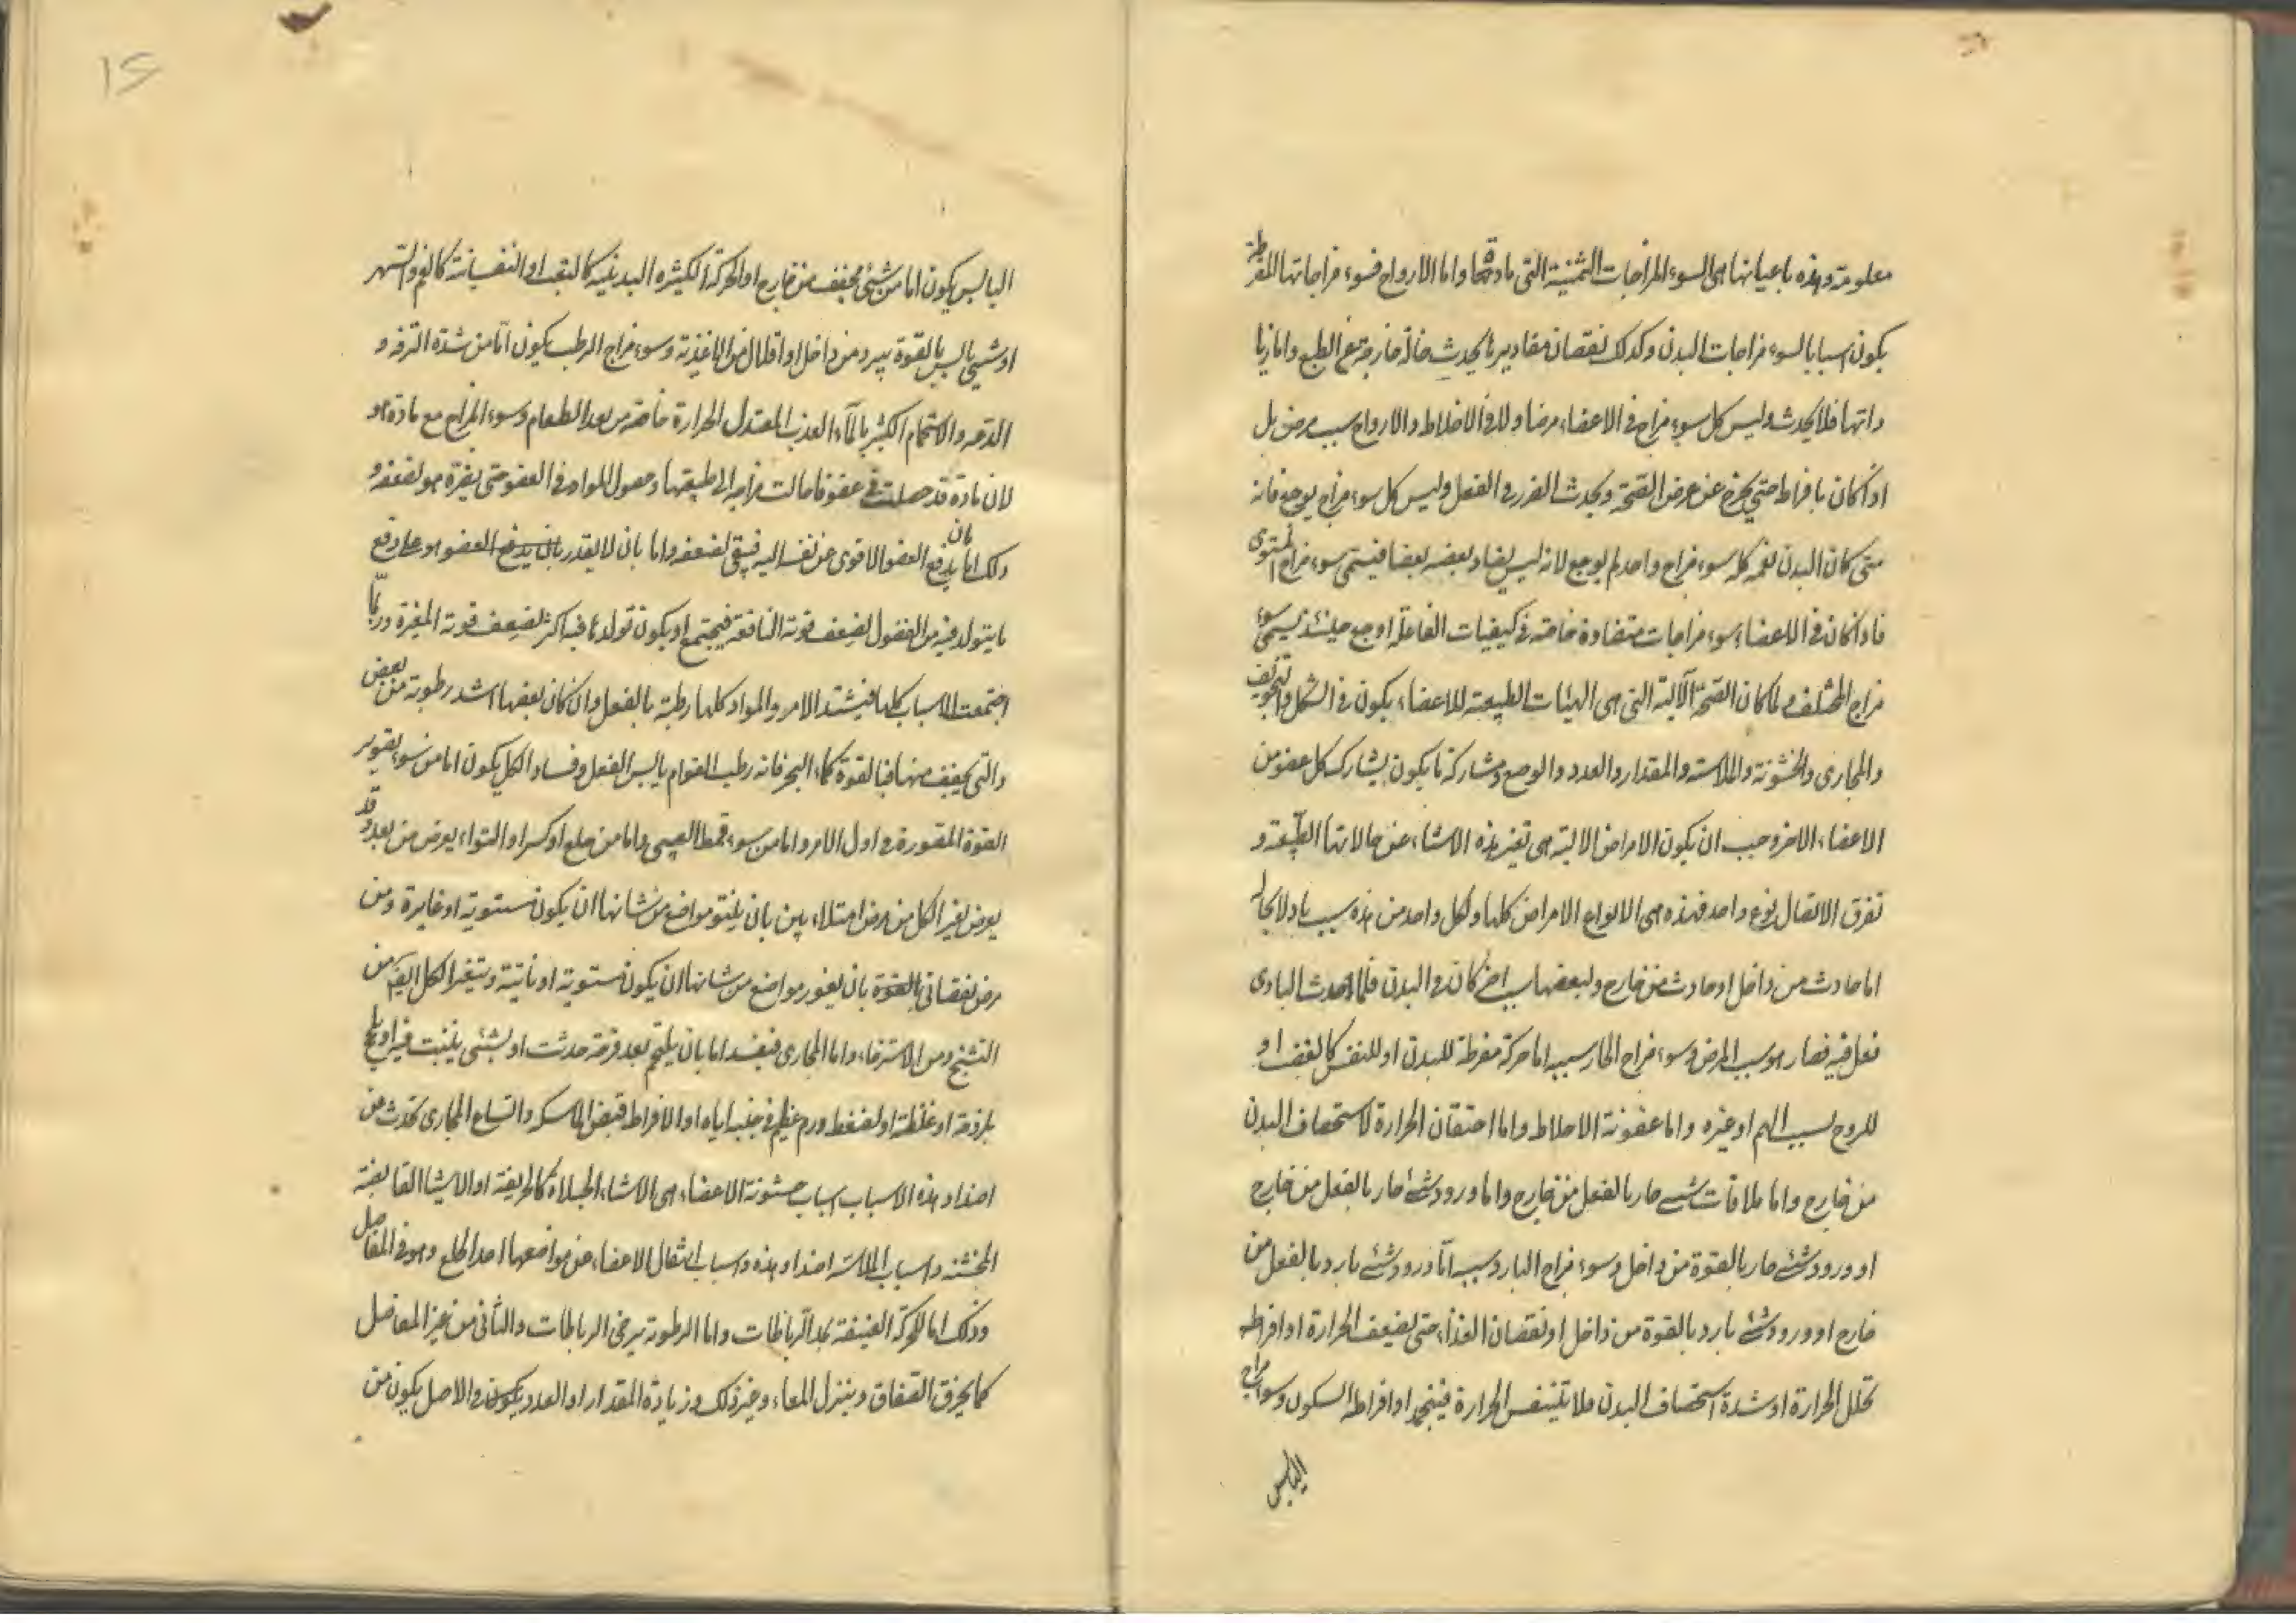 معلومة وهذه باعيانها هى السوء المزاجات الثمنية التى مادتها واما الارواح فسوء مزاجاتها المفرطة
يكون اسبابا لسوء مزاجات البدن وكذلك نقصان مقاديرها يحدث حالة خارجة عن الطبع واما زيا
داتها فلا يحدث وليس كل سوء مزاج فى الاعضاء مرضا ولا فى الاخلاط والارواح سبب مرض بل
اذا كان بافراط حتى يخرج عن عرض الصحة ويحدث الضرر فى الفعل وليس كل سوء مزاج يوجع فانه
متى كان البدن يعمه كله سوء مزاج واحد لم يوجع لانه ليس يضاد بعضه بعضا فيسمى سوء مزاج المستوى
فاذا كان فى الاعضاء سوء مزاجات متضادة خاصة فى كيفيات الفاعلة اوجع حينئذ يسمى سوء
مزاج المختلف ولما كان الصحة الآلية التى هى الهيئات الطبيعية للاعضاء يكون فى الشكل والتجويف
والمجارى والخشونة والملاسة والمقدار والعدد والوضع ومشاركة ما يكون يشارك كل عضو من
الاعضاء الاخر وجب ان يكون الامراض الالية هى تغير هذه الاشياء عن حالاتها الطبيعية و
تفرق الاتصال نوع واحد فهذه هى الانواع الامراض كلها ولكل واحد من هذه سبب باد لا محالة
اما حادث من داخل او حادث من خارج ولبعضها سبب اخر كان فى البدن فلما احدث البادى
فعل فيه فصار هو سبب المرض وسوء مزاج الحار سببه اما حركة مفرطة للبدن او للنفس كالغضب او
للروح بسبب الهم او غيره واما عفونة الاخلاط واما احتقان الحرارة لاستحصاف البدن
من خارج واما ملاقات شىء حار بالفعل من خارج واما ورود شىء حار بالفعل من خارج
او ورود شىء حار بالقوة من داخل وسوء مزاج البارد سببه اما ورود شىء بارد بالفعل من
خارج او ورود شىء بارد بالقوة من داخل او نقصان الغذاء حتى يضعف الحرارة او افراط
تحلل الحرارة او شدة استحصاف البدن فلا يتنفس الحرارة فينجمد او افراط السكون وسوء مزاج
اليابس
١٤
اليابس يكون اما من شىء مجفف من خارج او الحركة الكثيره البدنية كالتعب او النفسانية كالغم والسهر
او شىء يابس بالقوة يرد من داخل او اقلال من الاغذية وسوء مزاج الرطب يكون اما من شدة الترفه و
الدعه والاستحمام الكثير بالماء العذب المعتدل الحرارة خاصة من بعد الطعام وسوء المزاج مع مادة هو
لان مادة قد حصلت فى عضو فامالت مزاجه الى طبيعتها وحصول المواد فى العضو حتى يضره هو لضعفه و
ذلك اما بان يدفع العضو الاقوى عن نفسه اليه فيبقى لضعفه واما بان لا يقدر بان يدفع العضو هو على دفع
ما يتولد فيه من الفضول لضعف قوته الدافعة فيجتمع او يكون تولدها فيه اكثر لضعف قوته المغيرة وربما
اجتمعت الاسباب كلها فيشتد الامر والمواد كلها رطبة بالفعل وان كان بعضها اشد رطوبة من بعض
والتى يجفف منها فبالقوة كماء البحر فانه رطب القوام يابس الفعل وفساد الكل يكون اما من سوء تصوير
القوة المصورة فى اول الامر واما من سوء قمط الصبى واما من خلع او كسر او التواء يعرض من بعد وقد
يعرض لغير الكل من مرض امتلاء بين بان ينتو مواضع من شانها ان يكون مستوية او غايرة ومن
مرض نقصانى بالقوة بان يغور مواضع من شانها ان يكون مستوية او ناتية ويتغير الكل ايضا من
التشنج ومن الاسترخاء واما المجارى فيفسد اما بان يلتحم بعد قرحة حدثت او بشىء ينبت فيه او
بلزوجة او غلظة او لضغط ورم عظيم فى جنبه اياه او الافراط قبض الماسكه واتساع المجارى تحدث من
اضداد هذه الاسباب اسباب خشونة الاعضاء هى الاشياء الجلاءة كالحريفة او الاشيا القابضة
المخشنه واسباب الملاسة اضداد هذه واسباب انتقال الاعضاء عن مواضعها احد الخلع وهو فى المفاصل
وذلك اما للحركة العنيفة يمد الرباطات واما الرطوبة يرخى الرباطات والثانى من غير المفاصل
كما يخرق الصفاق وينزل المعاء وغير ذلك وزيادة المقدار او العدد يكون فى الاصل يكون من